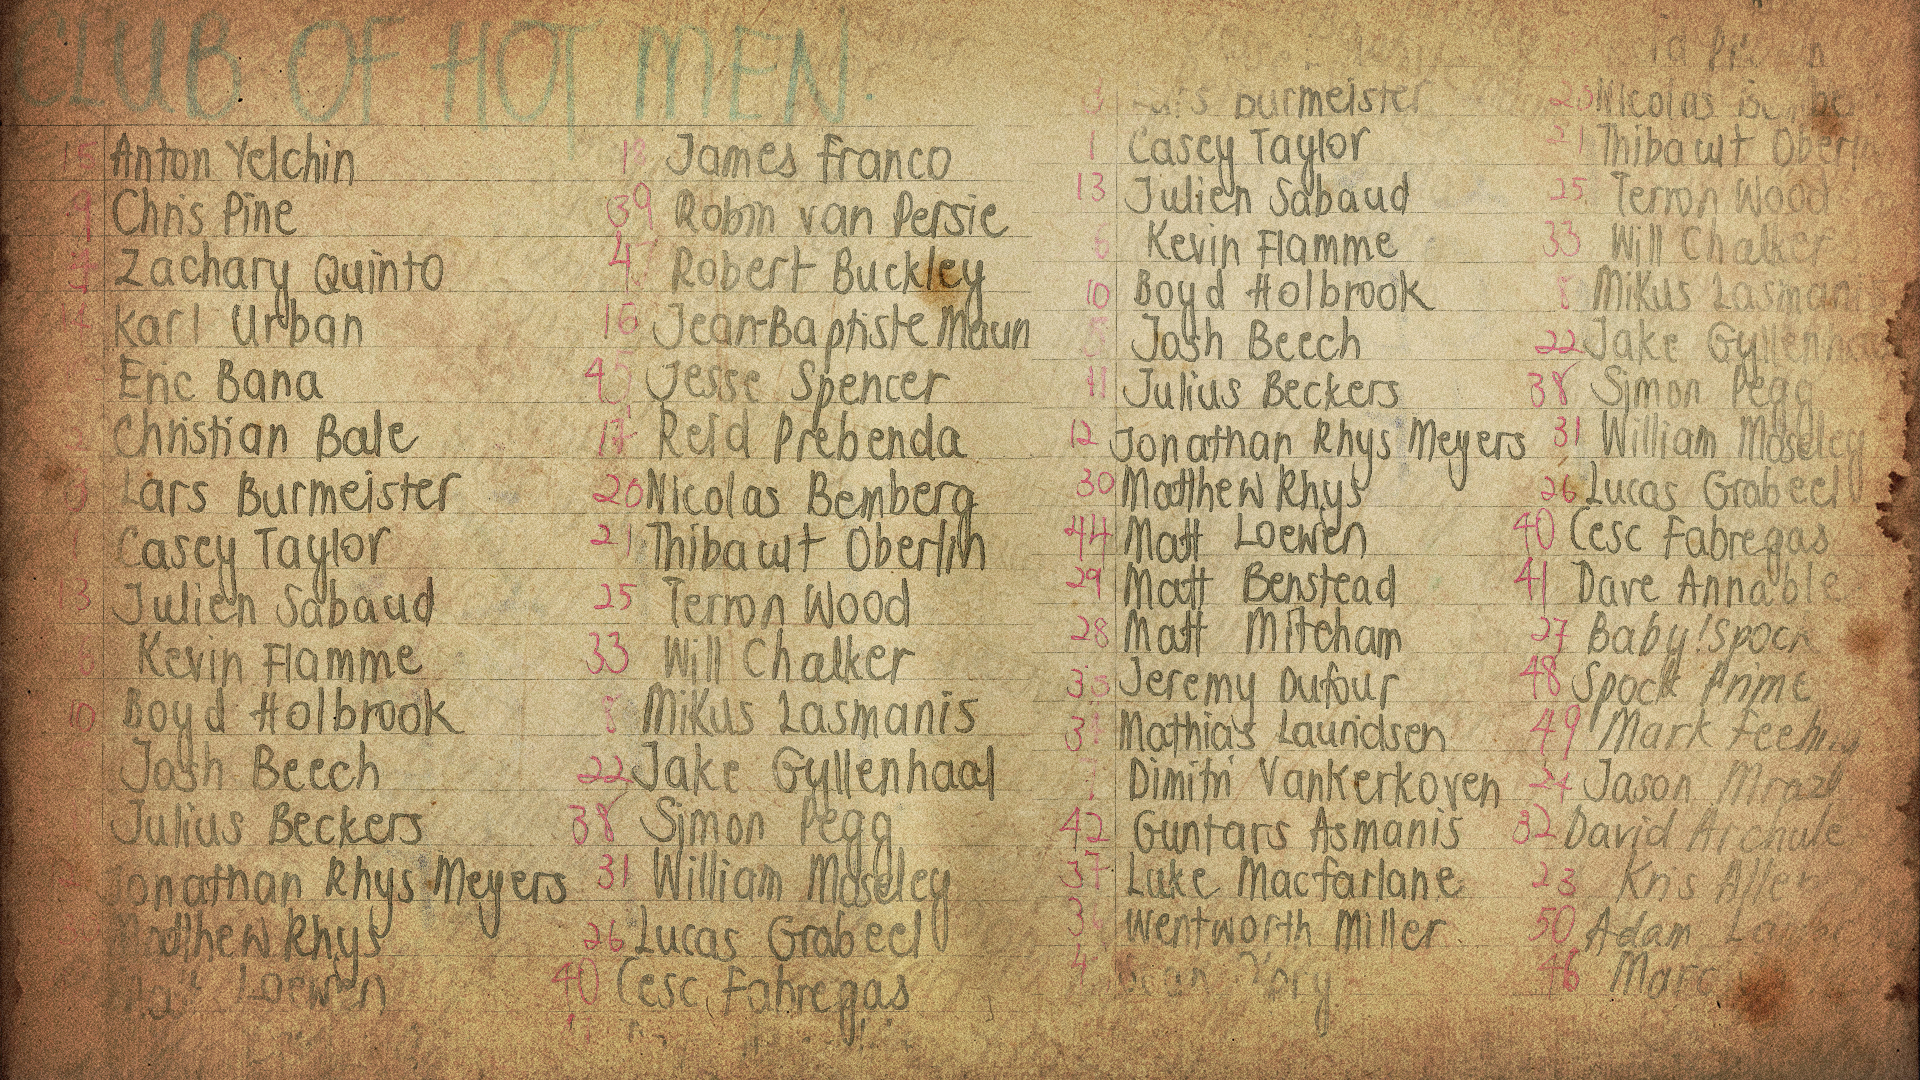 CLUB OF HOT MEN.
15 Anton Yelchin
9 Chris Pine
Zachary Quinto
Karl Urban
Eric Bana
Christian Bale
Lars Burmeister
Casey Taylor
13 Julien Sabaud
Kevin Flamme
10 Boyd Holbrook
Josh Beech
Julius Beckers
Jonathan Rhys Meyers
Matthew Rhys
Loewen
James Franco
39 Robin van Persie
4 Robert Buckley
16 Jean-Baptiste Maun
Jesse Spencer
17 Reid Prebenda
20 Nicolas Bemberg
21 Thibault Oberlin
25 Terron Wood
33 Will Chalker
8 Mikus Lasmanis
22 Jake Gyllenhaal
38 Simon Pegg
31 William Moseley
26 Lucas Grabeel
40 Cesc Fabregas
Lars Burmeister
1 Casey Taylor
13 Julien Sabaud
6 Kevin Flamme
10 Boyd Holbrook
5 Josh Beech
11 Julius Beckers
12 Jonathan Rhys Meyers
30 Matthew Rhys
44 Matt Loewen
29 Matt Benstead
28 Matt Mitcham
35 Jeremy Dufour
Mathias Lauridsen
Dimitri Vankerkoven
42 Guntars Asmanis
37 Luke Macfarlane
Wentworth Miller
20 Nicolas
21 Thibault Oberlin
25 Terron Wood
33 Will Chalker
8 Mikus Lasmanis
22 Jake
38 Simon Pegg
31 William Moseley
26 Lucas Grabeel
40 Cesc Fabregas
41 Dave Annable
27 Baby!Spock
48 Spock Prime
49 Mark
24 Jason Mraz
32 David Archule
23 Kris Allen
50 Adam
46 Marc